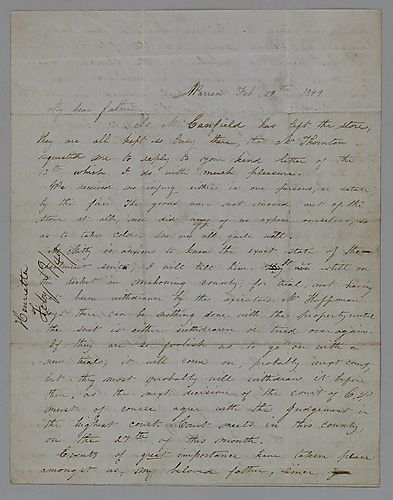 Warren Feb 19th 1849
My dear father
As Mr Canfield has left the store,
they are all kept so busy there, that Mr Thornton
requested me to reply to your kind letter of the
13th which I do with much pleasure.
We received no injury either in our persons, or estate
by the fire. The goods were not moved out of the
store at all, nor did any of us expose ourselves, so
as to take cold. We are all quite well.
As Mr is anxious to know the exact state of the
suit, I will tell him. still on
the docket in mahoning county, for trial, not having
been withdrawn by the executor. Mr Hoffman
says there can be nothing done with the property, until
the suit is either withdrawn or tried over again.
If they are so foolish as to go on with a
new trial, it will come on, probably next
but they most probably will withdraw it before
then, as the next decision of the court of C.P.
must of course agree with the Judgement in
the highest court. Court meets in this county,
on the 27th of this month.
Events of great importance have taken place
amongst us, my beloved father, since
Henrietta
Feby 19